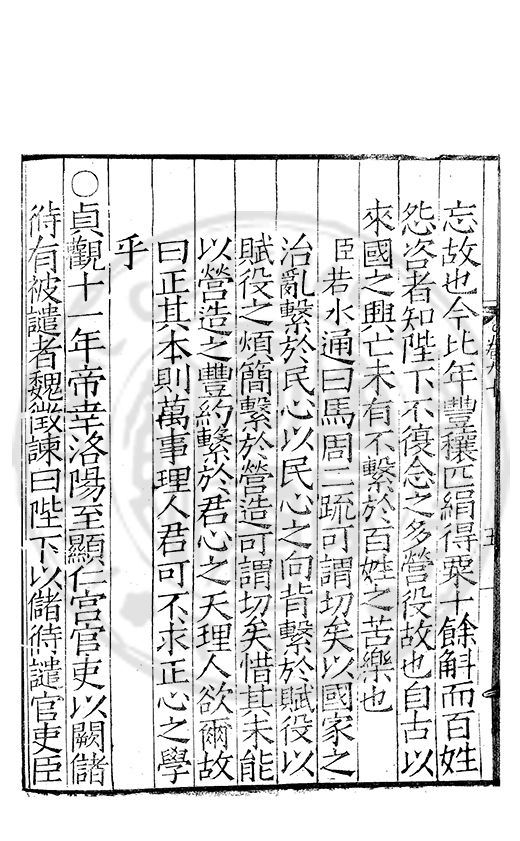 忘故也今比年豐穰匹絹得粟十餘斛而百姓
怨咨者知陛下不復念之多營役故也自古以
來國之興亡未有不繫於百姓之苦樂也
臣若水通曰馬周二疏可謂切矣以國家之
治亂繫於民心以民心之向背繫於賦役以
賦役之煩簡繫於營造可謂切矣惜其未能
以營造之豐約繫於君心之天理人欲爾故
曰正其本則萬事理人君可不求正心之學
乎
○貞觀十一年帝幸洛陽至顯仁宮官吏以闕儲
偫有被譴者魏徵諫曰陛下以儲偫譴官吏臣